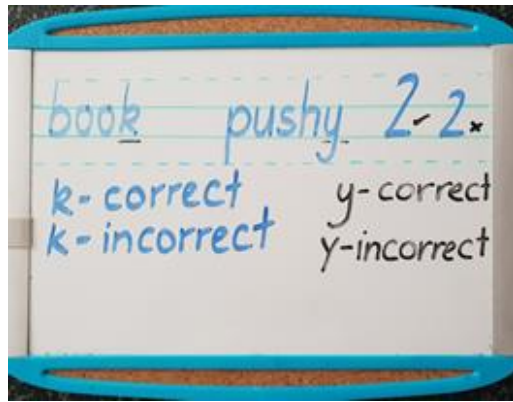 book pushy 2✓ 2×
k - correct
k - incorrect
y - correct
y - incorrect